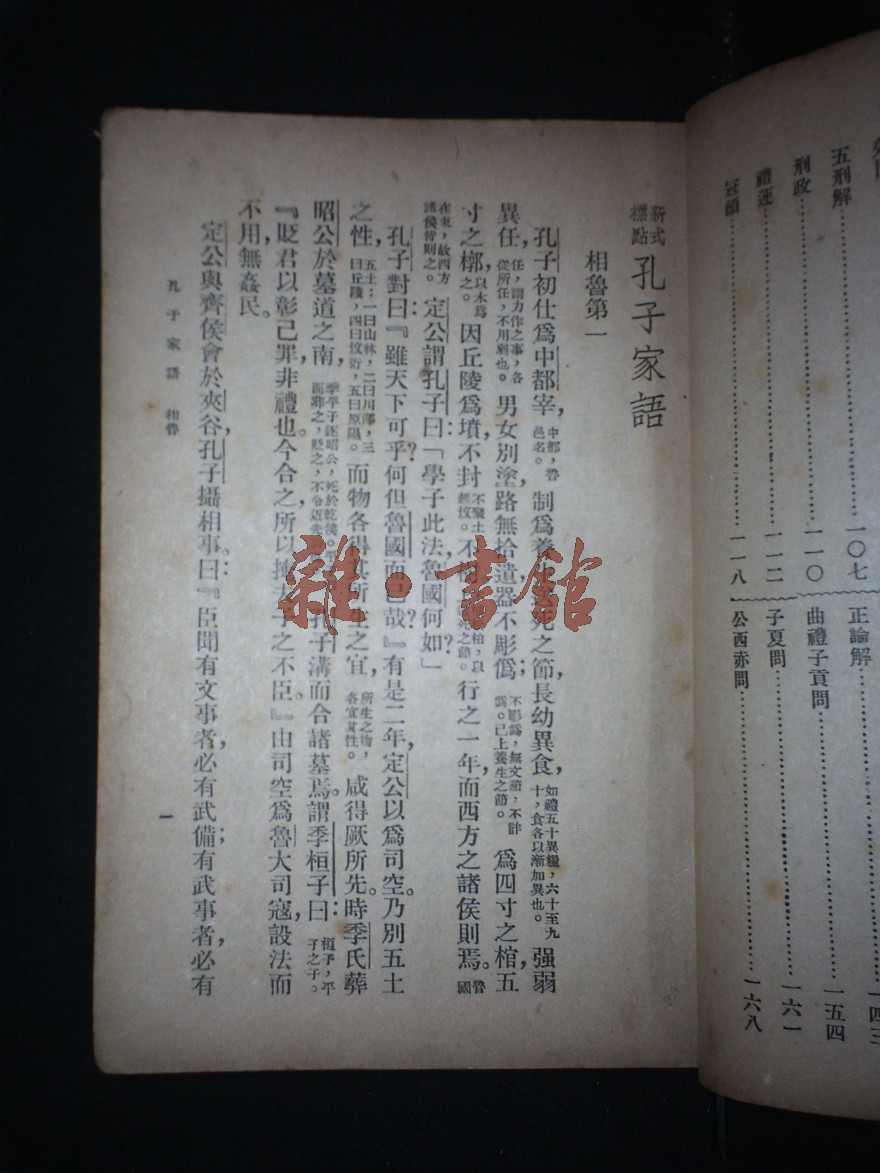 刑政
五刑解
一〇七
正論解
一四三
一一〇
曲禮子貢問
一五四
禮運
一一二
子夏問
一六一
冠頌
一一八
公西赤問
一六八
新式標點 孔子家語
相魯第一
孔子初仕爲中都宰，中都，魯邑名。制爲養死之節，長幼異食，如禮五十異糧，六十至九十，食各以漸加異也。強弱
異任，任，謂力作之事，各從所任，不用弱也。男女別塗，路無拾遺，器不彫僞，不彫僞，無文節，不詐僞。已上養生之節。爲四寸之棺，五
寸之槨，以木爲之。因丘陵爲墳，不封，不聚土起墳。不柏，以之節。行之一年，而西方之諸侯則焉。魯國
在東，故西方諸侯皆則之。定公謂孔子曰：「學子此法，魯國何如？」
孔子對曰：『雖天下可乎？何但魯國而已哉？』有是二年，定公以爲司空。乃別五土
之性，五土：一曰山林，二曰川澤，三曰丘陵，四曰墳衍，五曰原隰。而物各得其所生之宜，所生之物，各宜其性。咸得厥所先。時季氏葬
昭公於墓道之南，季平子逐昭公，死於乾侯。平而葬之，貶之，不令近先孔子溝而合諸墓焉。謂季桓子曰：桓子，平子之子。
『貶君以彰己罪，非禮也。今合之，所以掩夫子之不臣。』由司空爲魯大司寇，設法而
不用，無姦民。
定公與齊侯會於夾谷，孔子攝相事。曰：『臣聞有文事者，必有武備；有武事者，必有
孔子家語 相魯
一
雜·書館